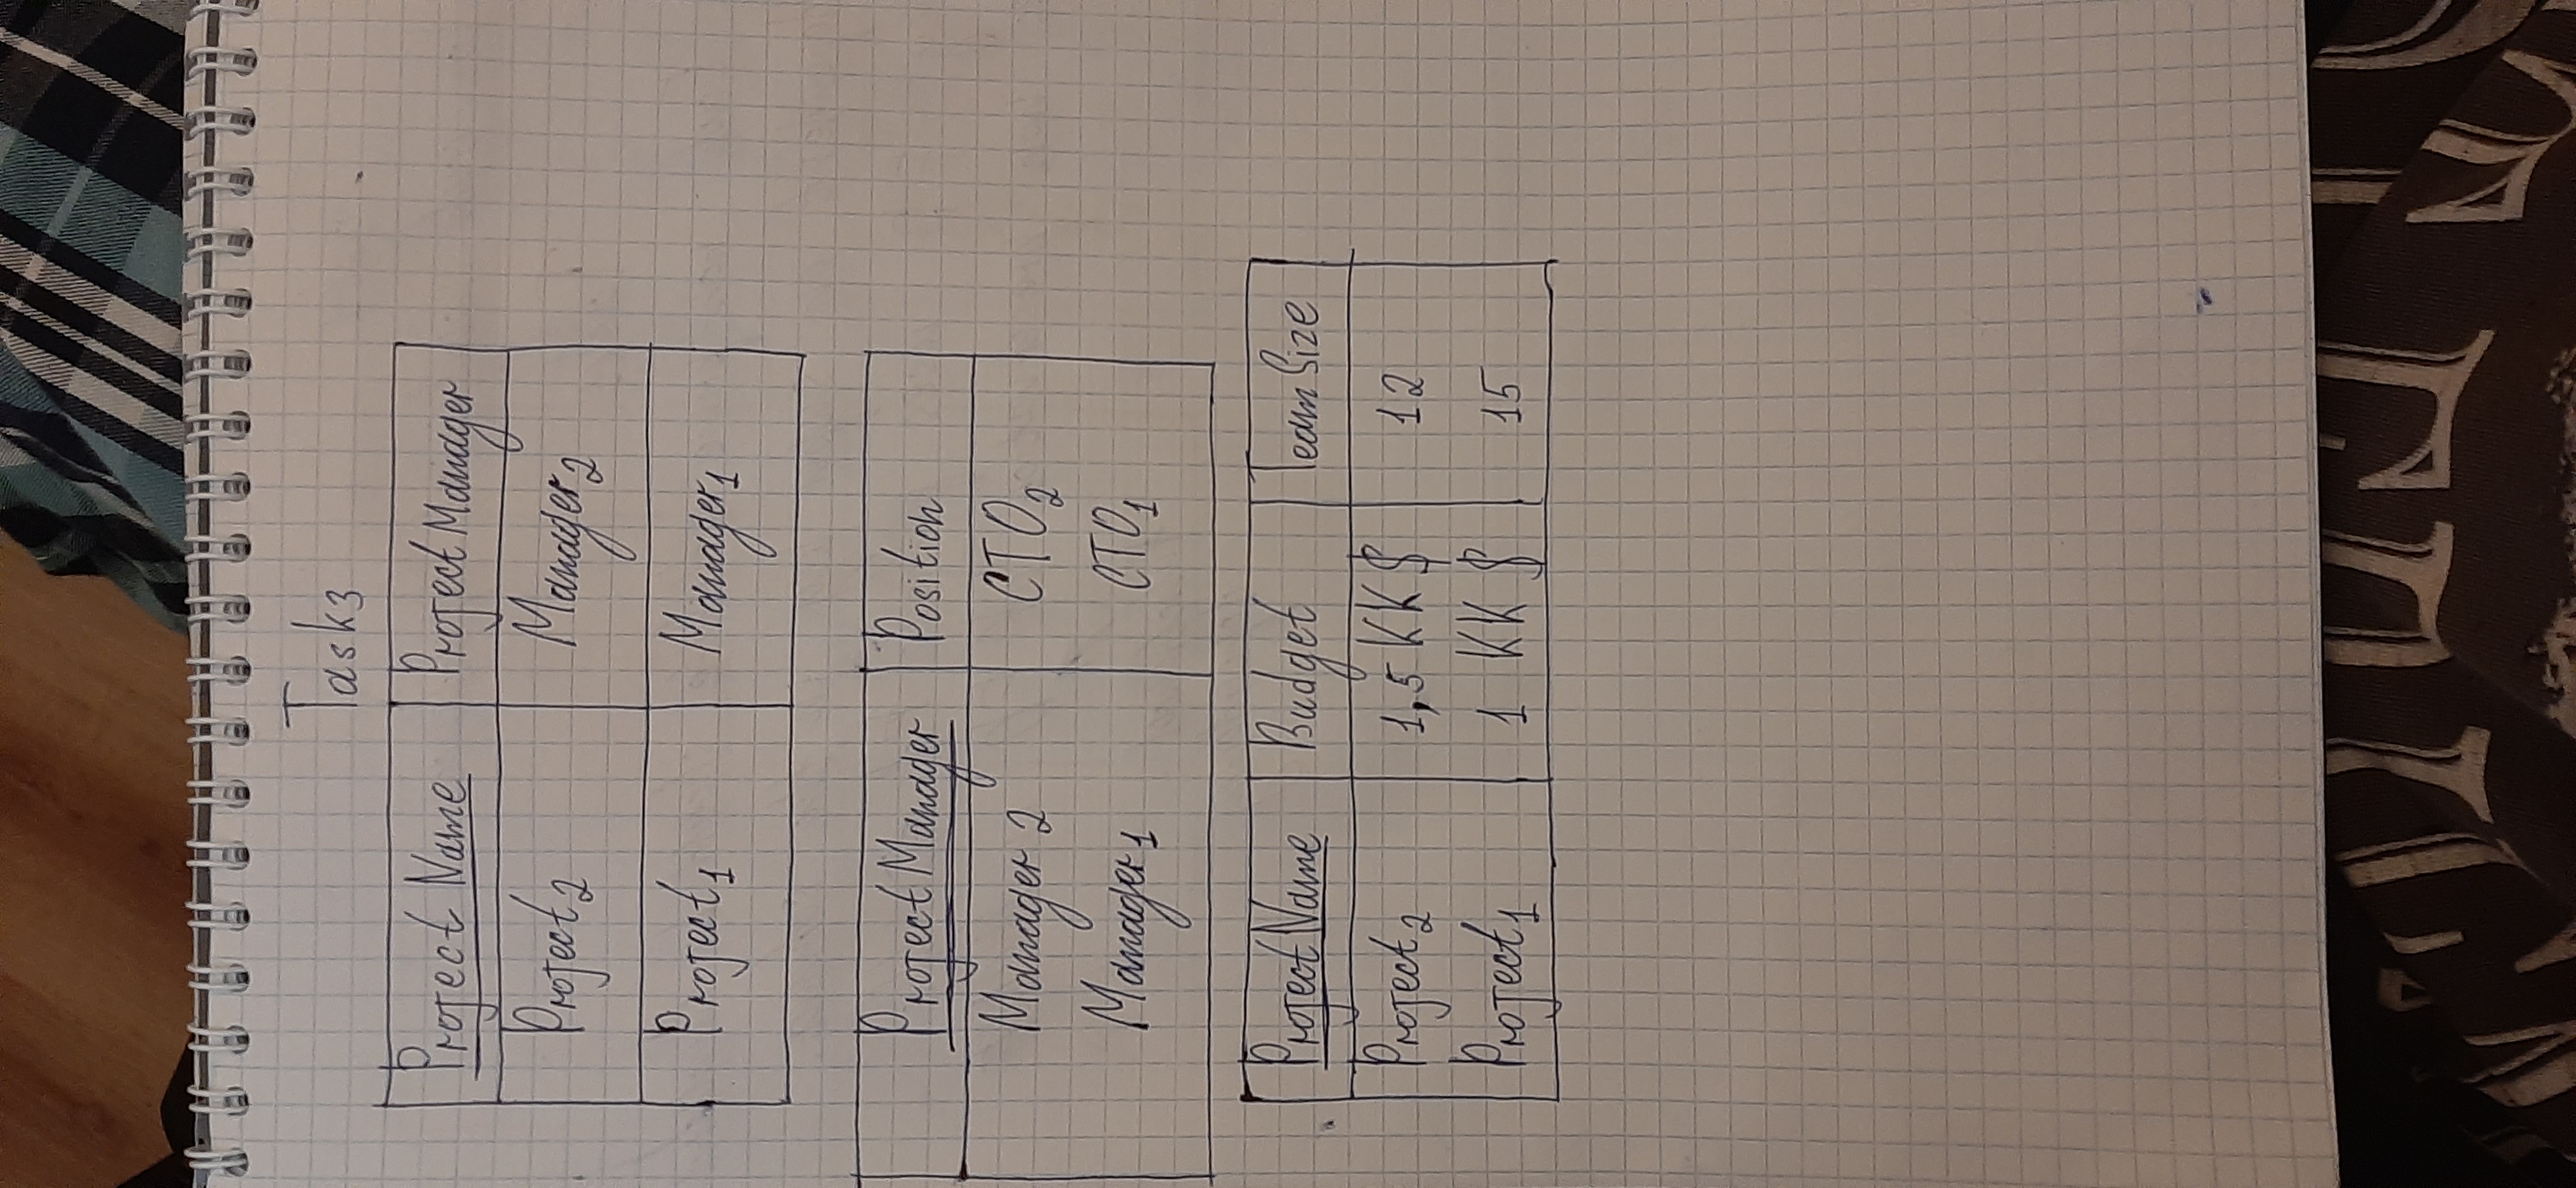 Task3
Project Name Project Manager
Project2 Manager2
Project1 Manager1
Project Manager Position
Manager 2 CTO2
Manager1 CTO1
Project Name Budget Team Size
Project2 1,5 KK $ 12
Project1 1 KK $ 15